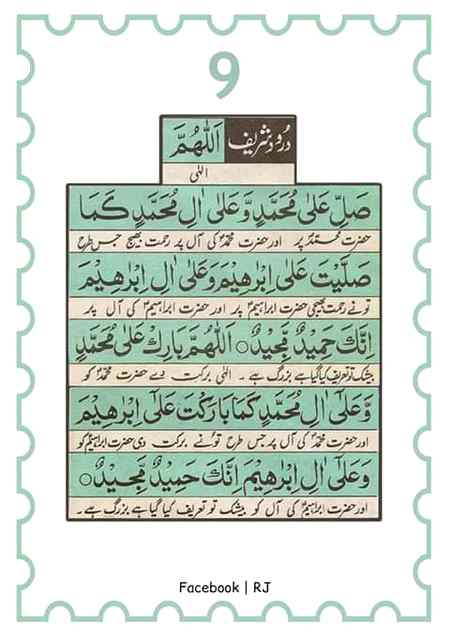 9
درود شریف اَللّٰهُمَّ
الٰہی
صَلِّ عَلٰى مُحَمَّدٍ وَّعَلٰٓى اٰلِ مُحَمَّدٍ كَمَا
حضرت محمدؐ پر اور حضرت محمدؐ کی آل پر رحمت بھیج جس طرح
صَلَّيْتَ عَلٰٓى اِبْرٰهِيْمَ وَعَلٰٓى اٰلِ اِبْرٰهِيْمَ
تونے رحمت بھیجی حضرت ابراہیمؑ پر اور حضرت ابراہیمؑ کی آل پر
اِنَّكَ حَمِيْدٌ مَّجِيْدٌ○ اَللّٰهُمَّ بَارِكْ عَلٰى مُحَمَّدٍ
بیشک تو تعریف کیا گیا ہے بزرگ ہے۔ الٰہی برکت دے حضرت محمدؐ کو
وَّعَلٰٓى اٰلِ مُحَمَّدٍ كَمَا بَارَكْتَ عَلٰٓى اِبْرٰهِيْمَ
اور حضرت محمدؐ کی آل پر جس طرح تونے برکت دی حضرت ابراہیمؑ کو
وَعَلٰٓى اٰلِ اِبْرٰهِيْمَ اِنَّكَ حَمِيْدٌ مَّجِيْدٌ○
اور حضرت ابراہیمؑ کی آل کو بیشک تو تعریف کیا گیا ہے بزرگ ہے۔
Facebook | RJ